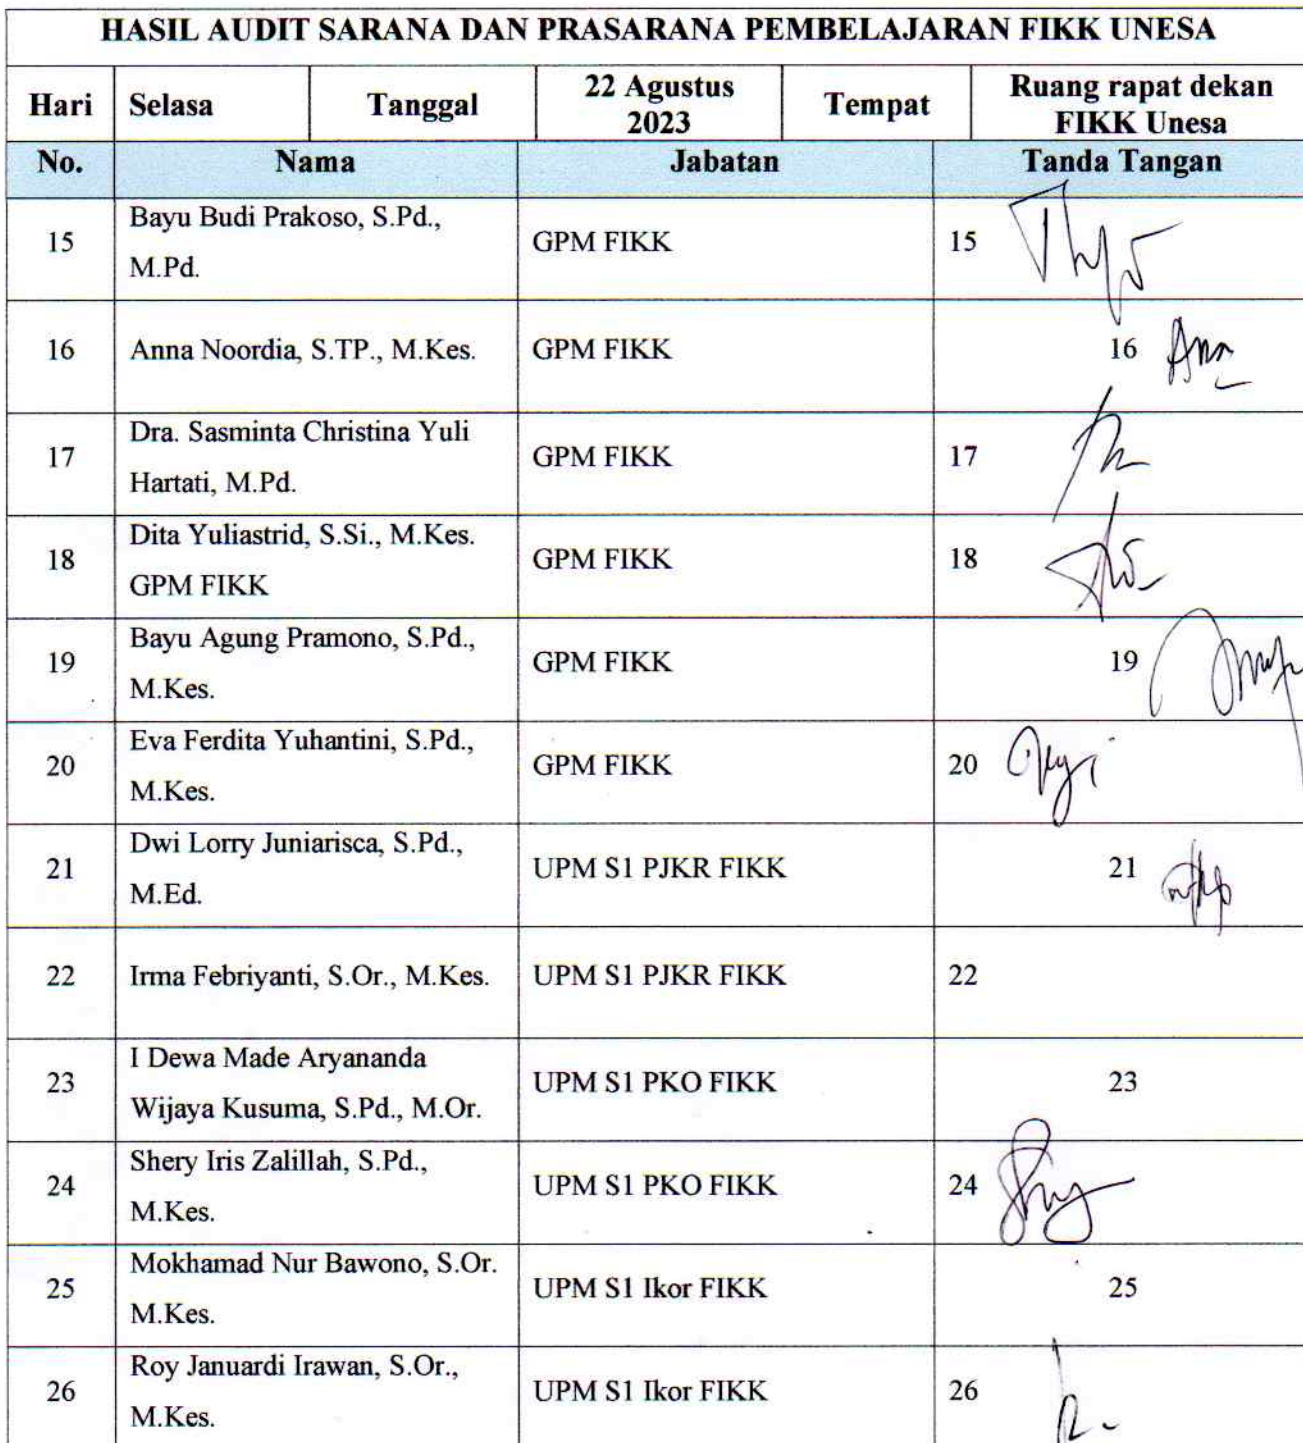 HASIL AUDIT SARANA DAN PRASARANA PEMBELAJARAN FIKK UNESA
Hari Selasa Tanggal 22 Agustus 2023 Tempat Ruang rapat dekan FIKK Unesa
No. Nama Jabatan Tanda Tangan
15 Bayu Budi Prakoso, S.Pd., GPM FIKK 15
M.Pd.
16 Anna Noordia, S.TP., M.Kes. GPM FIKK 16
17 Dra. Sasminta Christina Yuli GPM FIKK 17
Hartati, M.Pd.
18 Dita Yuliastrid, S.Si., M.Kes. GPM FIKK 18
GPM FIKK
19 Bayu Agung Pramono, S.Pd., GPM FIKK 19
M.Kes.
20 Eva Ferdita Yuhantini, S.Pd., GPM FIKK 20
M.Kes.
21 Dwi Lorry Juniarisca, S.Pd., UPM S1 PJKR FIKK 21
M.Ed.
22 Irma Febriyanti, S.Or., M.Kes. UPM S1 PJKR FIKK 22
23 I Dewa Made Aryananda UPM S1 PKO FIKK 23
Wijaya Kusuma, S.Pd., M.Or.
24 Shery Iris Zalillah, S.Pd., UPM S1 PKO FIKK 24
M.Kes.
25 Mokhamad Nur Bawono, S.Or. UPM S1 Ikor FIKK 25
M.Kes.
26 Roy Januardi Irawan, S.Or., UPM S1 Ikor FIKK 26
M.Kes.